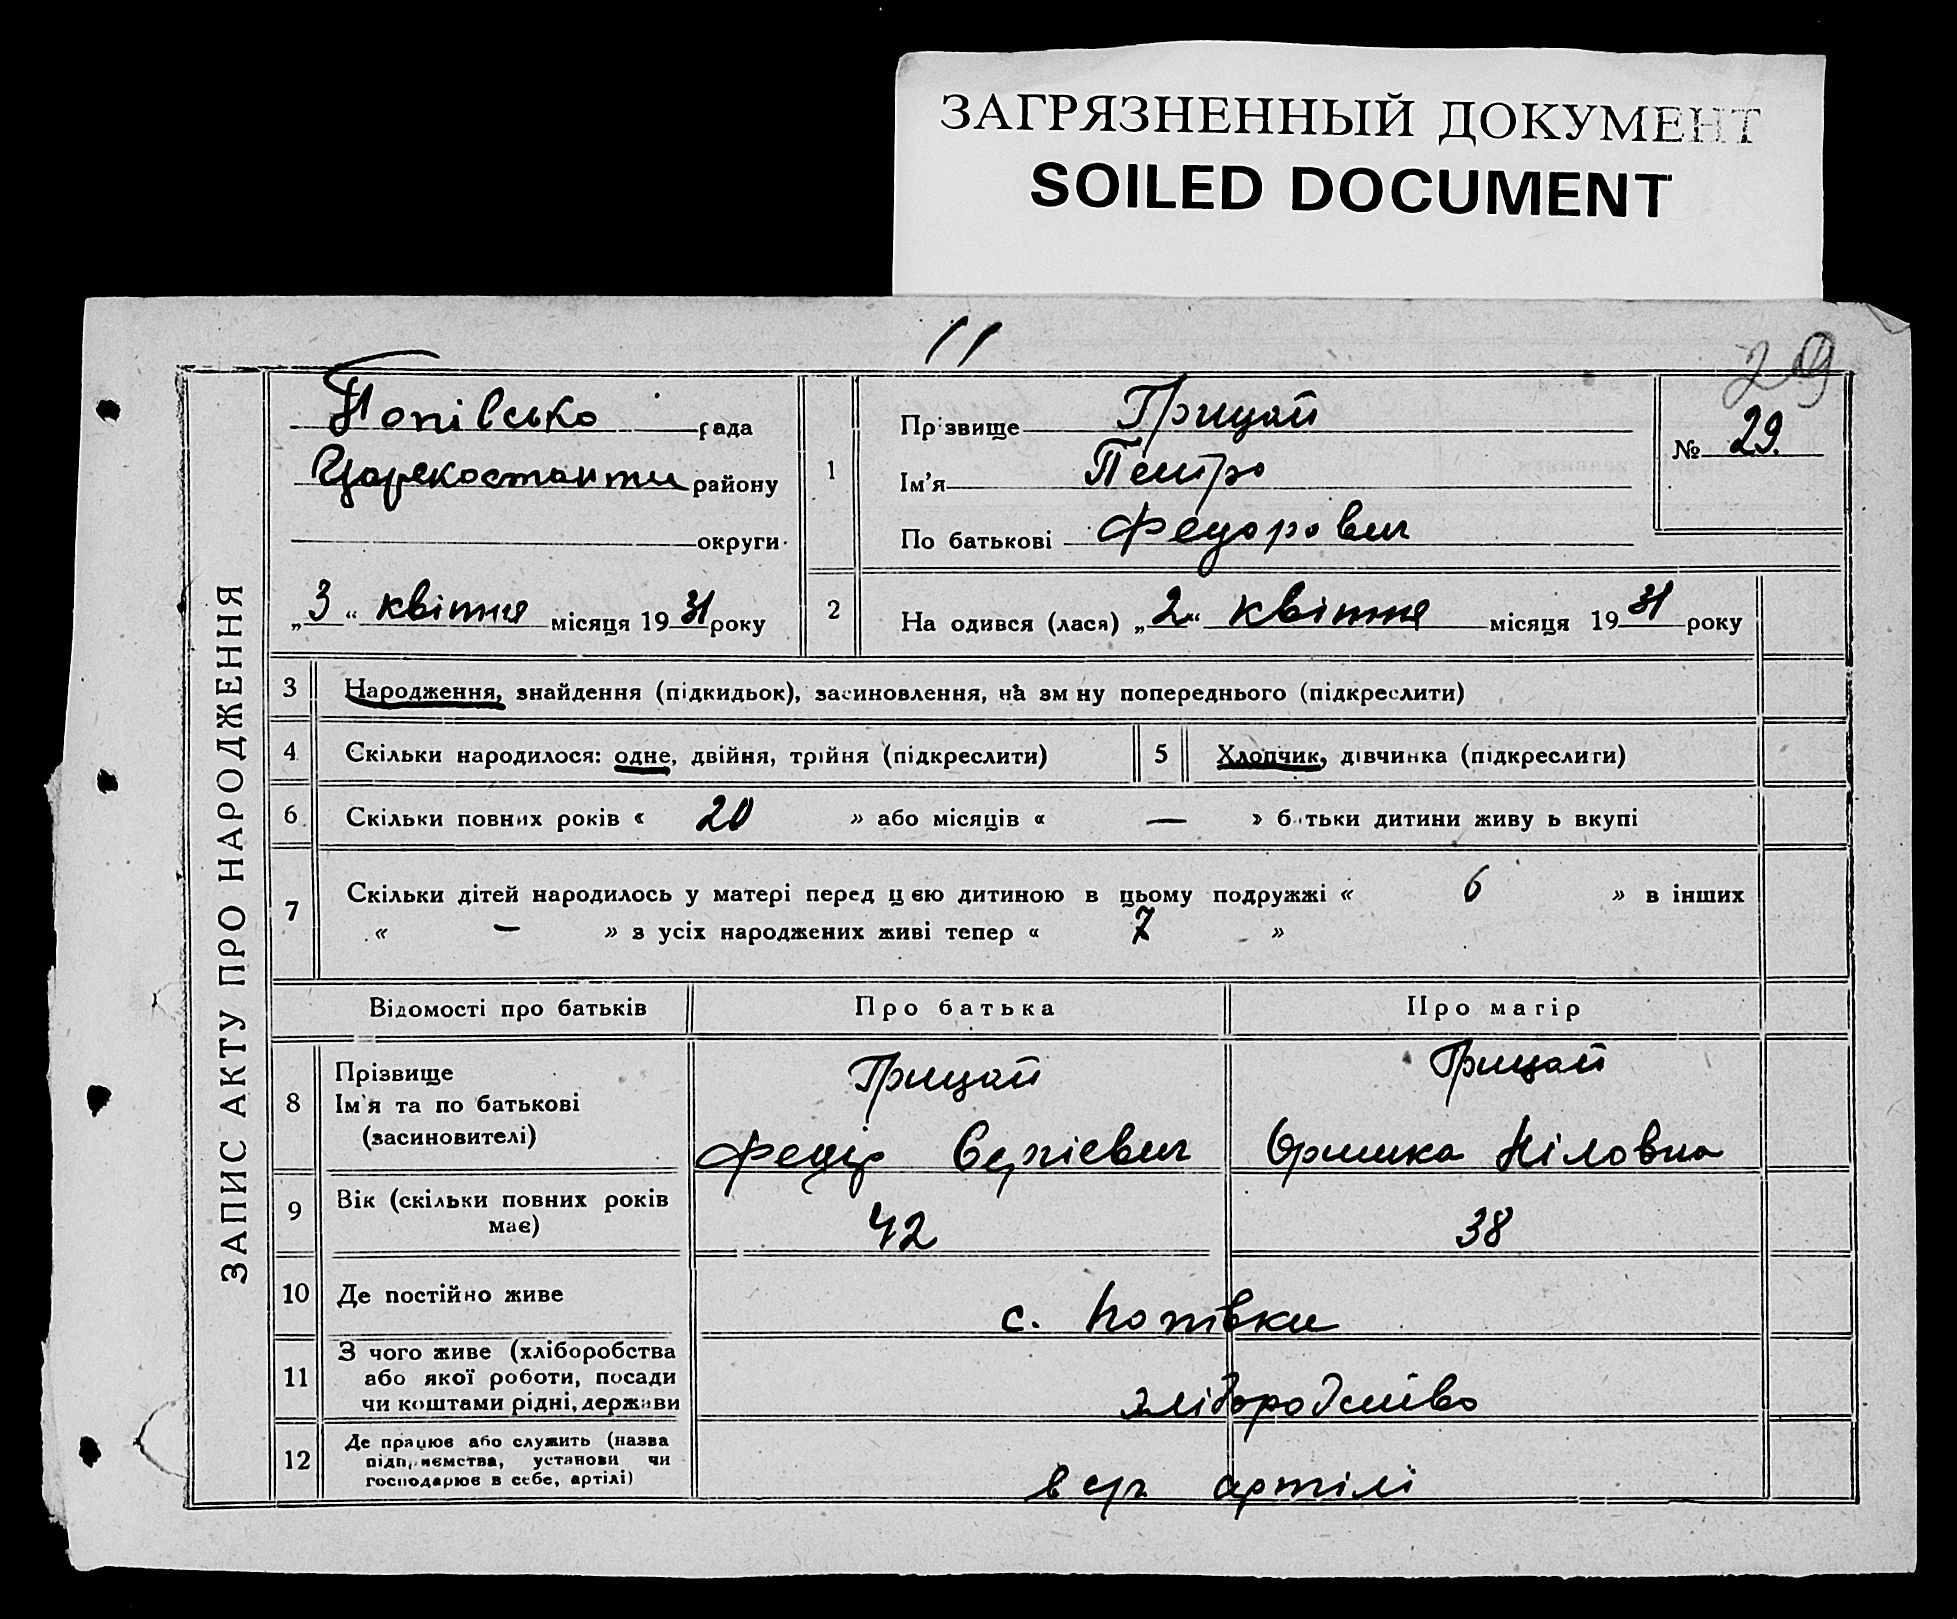 ЗАГРЯЗНЕННЫЙ ДОКУМЕНТ
SOILED DOCUMENT
11
29
ЗАПИС АКТУ ПРО НАРОДЖЕННЯ
Попівсько рада
Царекостанти району
округи
„3“ квітня місяця 1931 року
1
Прізвище Грицай
Ім'я Петро
По батькові Федорович
№ 29.
2 На одився (лася) „2“ квітня місяця 1931 року
3 Народження, знайдення (підкидьок), засиновлення, на зм ну попереднього (підкреслити)
4 Скільки народилося: одне, двійня, трійня (підкреслити) 5 Хлопчик, дівчинка (підкреслити)
6 Скільки повних років « 20 » або місяців « — » б тьки дитини живу ь вкупі
7 Скільки дітей народилось у матері перед цією дитиною в цьому подружжі « 6 » в інших
« — » з усіх народжених живі тепер « 7 »
Відомості про батьків Про батька Про матір
8 Прізвище
Ім'я та по батькові
(засиновителі)
Грицай
Федір Сергієвич
Грицай
Оришка Ніловна
9 Вік (скільки повних років
має)
42 38
10 Де постійно живе с. Попівки
11 З чого живе (хліборобства
або якої роботи, посади
чи коштами рідні, держави
хліборобство
12 Де працює або служить (назва
підприємства, установи чи
господарює в себе, артілі)
в с/г артілі